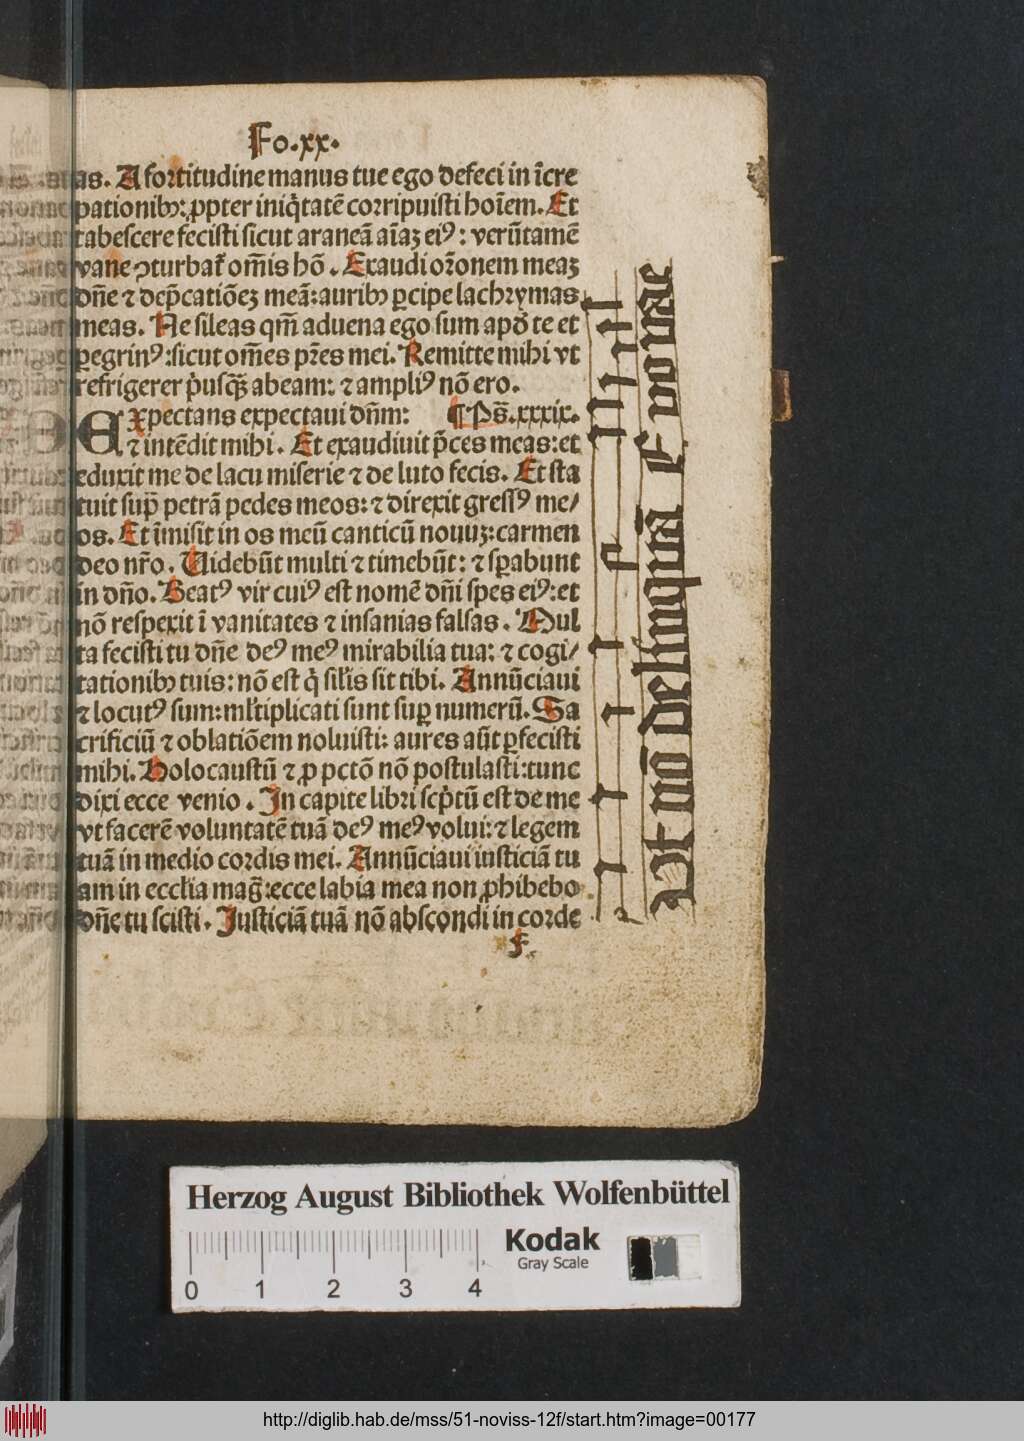 Fo.xx.
as. A fortitudine manus tue ego defeci in īcre
pationibꝰ: ꝓpter iniq̇tatē corripuisti hoīem. Et
tabescere fecisti sicut araneā aīaꝫ eiꝰ: verūtamē
vane ꝯturbat᷑ om̄is hō. Exaudi or̄onem meaꝫ
dn̄e ⁊ dep̄catiōeꝫ meā: auribꝰ ꝑcipe lachrymas
meas. Ne sileas qm̄ aduena ego sum apđ te et
ꝑegrinꝰ: sicut om̄es pr̄es mei. Remitte mihi vt
refrigerer p̍usqꝫ̄ abeam: ⁊ ampliꝰ nō ero.
EXpectans expectaui dn̄m: ¶ Ps̄. xxxix.
⁊ intēdit mihi. Et exaudiuit p̄ces meas: et
eduxit me de lacu miserie ⁊ de luto fecis. Et sta
tuit sup̄ petrā pedes meos: ⁊ direxit gressꝰ me/
os. Et īmisit in os meū canticū nouuꝫ: carmen
deo nr̄o. Uidebūt multi ⁊ timebūt: ⁊ sꝑabunt
in dn̄o. Beatꝰ vir cuiꝰ est nomē dn̄i spes eiꝰ: et
nō respexit ī vanitates ⁊ insanias falsas. Mul
ta fecisti tu dn̄e deꝰ meꝰ mirabilia tua: ⁊ cogi/
tationibꝰ tuis: nō est q̍ sil̄is sit tibi. Annūciaui
⁊ locutꝰ sum: ml̄tiplicati sunt suꝑ numerū. Sa
crificiū ⁊ oblatiōem noluisti: aures aūt ꝑfecisti
mihi. Holocaustū ⁊ ꝓ pctō nō postulasti: tunc
dixi ecce venio. In capite libri scp̄tū est de me
vt facerē voluntatē tuā deꝰ meꝰ volui: ⁊ legem
tuā in medio cordis mei. Annūciaui iusticiā tu
am in ecclia mag̃: ecce labia mea non ꝓhibebo
dn̄e tu scisti. Justiciā tuā nō abscondi in corde
f
Ut nō delinquā
Herzog August Bibliothek Wolfenbüttel
0 1 2 3 4
Kodak
Gray Scale
http://diglib.hab.de/mss/51-noviss-12f/start.htm?image=00177